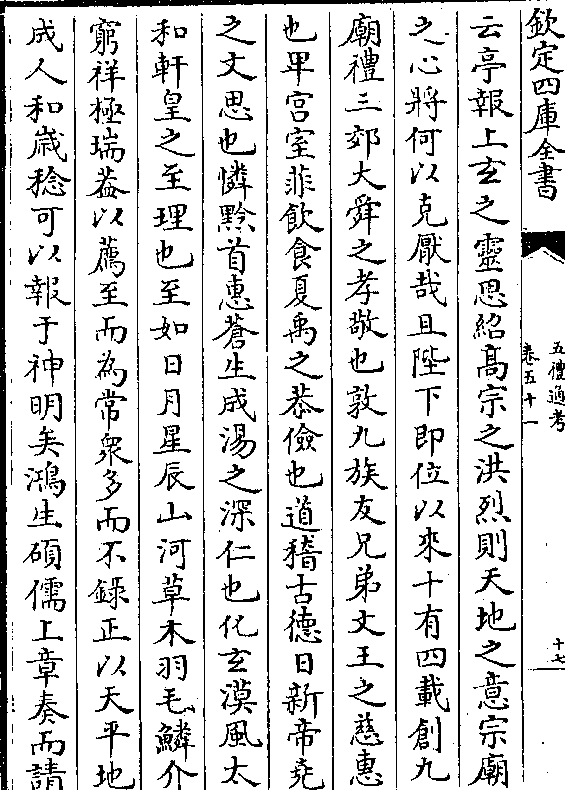 欽定四庫全書
五禮通考
卷五十一
十七
云亭報上玄之靈恩紹髙宗之洪烈則天地之意宗廟
之心將何以克厭哉且陛下即位以來十有四載創九
廟禮三郊大舜之孝敬也敦九族友兄弟文王之慈惠
也卑宫室菲飲食夏禹之恭儉也道稽古德日新帝堯
之文思也憐黔首惠蒼生成湯之深仁也化玄漠風太
和軒皇之至理也至如日月星辰山河草木羽毛鱗介
窮祥極瑞葢以薦至而為常衆多而不錄正以天平地
成人和嵗稔可以報于神明矣鴻生碩儒上章奏而請